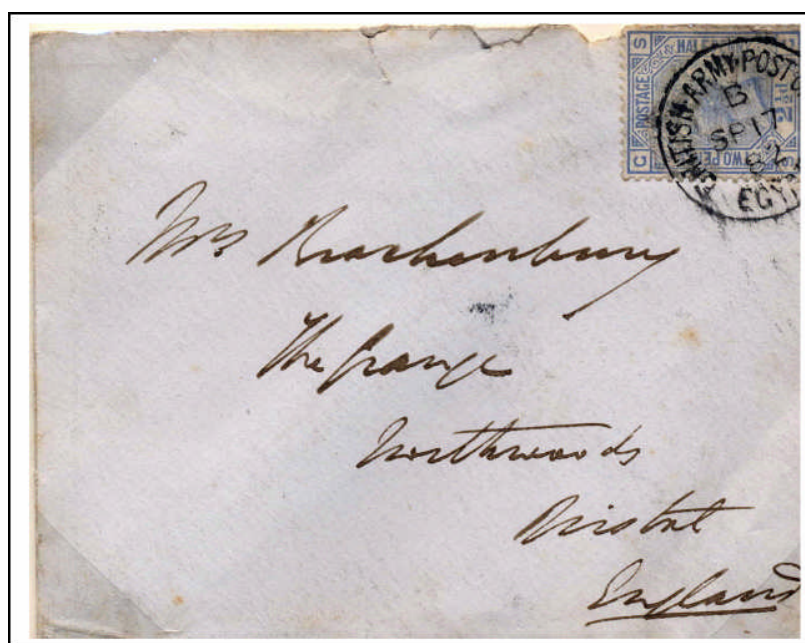 S HALF
POSTAGE
2½d
C TWO PE
BRITISH ARMY POST O
B
SP 17
82
EGYP
Mrs Brackenbury
The Grange
Northwoods
Bristol
England